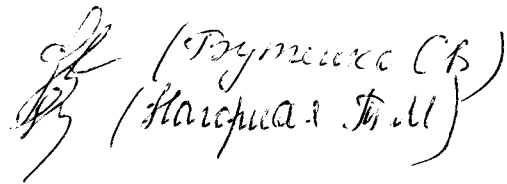 (Бутенко С В)
(Нагорная Т М)